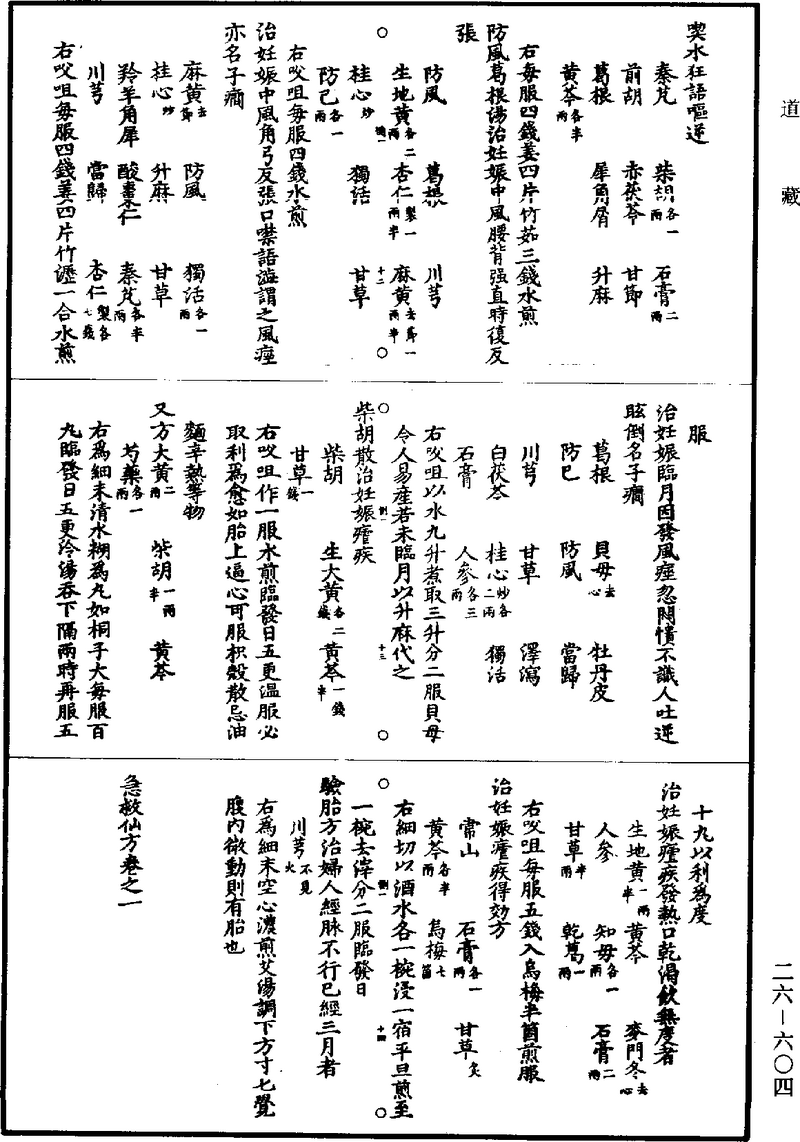 道藏
喫水狂語嘔逆
秦艽 柴胡各一兩 石膏二兩
前胡 赤茯苓 甘節
葛根 犀角屑 升麻
黃芩各半兩
右每服四錢姜四片竹茹三錢水煎
防風葛根湯治妊娠中風腰背强直時復反
張
防風 葛根 川芎
生地黃各二兩 杏仁製一兩半 麻黃去節一兩半
桂心炒 獨活 甘草
防己各一兩
右㕮咀每服四錢水煎
治妊娠中風角弓反張口噤語澁謂之風痙
亦名子癎
麻黃去節 防風 獨活各一兩
桂心炒 升麻 甘草
羚羊角犀 酸棗仁 秦艽各半兩
川芎 當歸 杏仁製各七錢
右㕮咀每服四錢姜四片竹瀝一合水煎
服
治妊娠臨月因發風痙忽悶憒不識人吐逆
眩倒名子癎
葛根 貝母去心 牡丹皮
防己 防風 當歸
川芎 甘草 澤瀉
白茯苓 桂心炒各二兩 獨活
石膏 人參各三兩
右㕮咀以水九升煮取三升分二服貝母
令人易産若未臨月以升麻代之
柴胡散治妊娠瘧疾
柴胡 生大黃各二錢 黃芩一錢半
甘草一錢
右㕮咀作一服水煎臨發日五更温服必
取利爲愈如胎上逼心可服枳殼散忌油
麵辛熱等物
又方大黃二兩 柴胡一兩半 黃芩
芍藥各一兩
右爲細末清水糊爲丸如桐子大每服百
丸臨發日五更冷湯吞下隔兩時再服五
十九以利爲度
治妊娠瘧疾發熱口乾渴飲無度者
生地黃一兩半 黃芩 麥門冬去心
人參 知母各一兩 石膏二兩
甘草半兩 乾葛一兩
右㕮咀每服五錢入烏梅半箇煎服
治妊娠瘧疾得効方
常山 石膏各一兩 甘草炙
黃芩各半兩 烏梅七箇
右細切以酒水各一椀浸一宿平旦煎至
一椀去滓分二服臨發日
驗胎方治婦人經脉不行已經三月者
川芎不見火
右爲細末空心濃煎艾湯調下方寸匕覺
腹內微動則有胎也
急救仙方卷之一
二六—六〇四